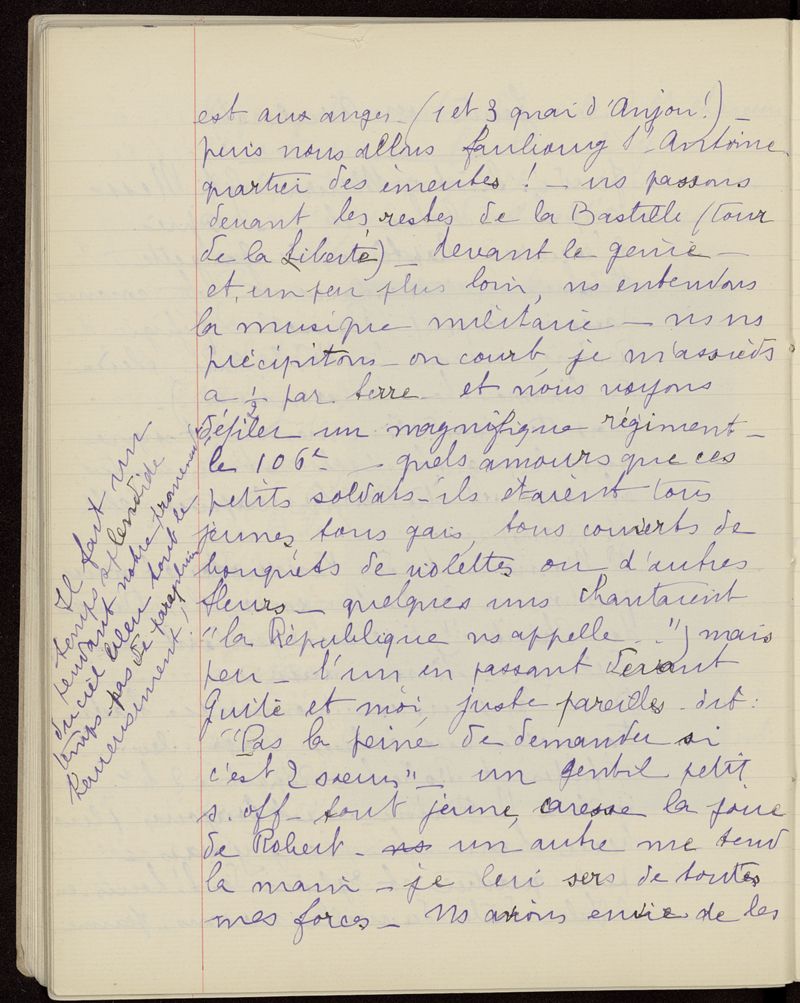 est aux anges – (1 et 3 quai d'Anjou!) –
puis nous allons faubourg St Antoine
quartier des émeutes ! – ns passons
devant les restes de la Bastille (tour
de la Liberté) – devant le génie –
et, un peu plus loin, ns entendons
la musique militaire – ns ns
précipitons – on court, je m'assieds
a ½ par terre et nous voyons
défiler un magnifique régiment –
le 106e – quels amours que ces
petits soldats – ils étaient tous
jeunes, tous gais, tous couverts de
bouquets de violettes ou d'autres
fleurs – quelques uns chantaient
"la République ns appelle..") mais
peu – l'un en passant devant
Guite et moi, juste pareilles – dit :
"Pas la peine de demander si
c'est 2 soeurs" – un gentil petit
s. off – tout jeune, caresse la joue
de Robert – ns un autre me tend
la main – je lui sers de toutes
mes forces – Ns avions envie de les
Il fait un
temps splendide
pendant notre promenade,
du ciel bleu tout le
temps – pas de parapluie
heureusement !